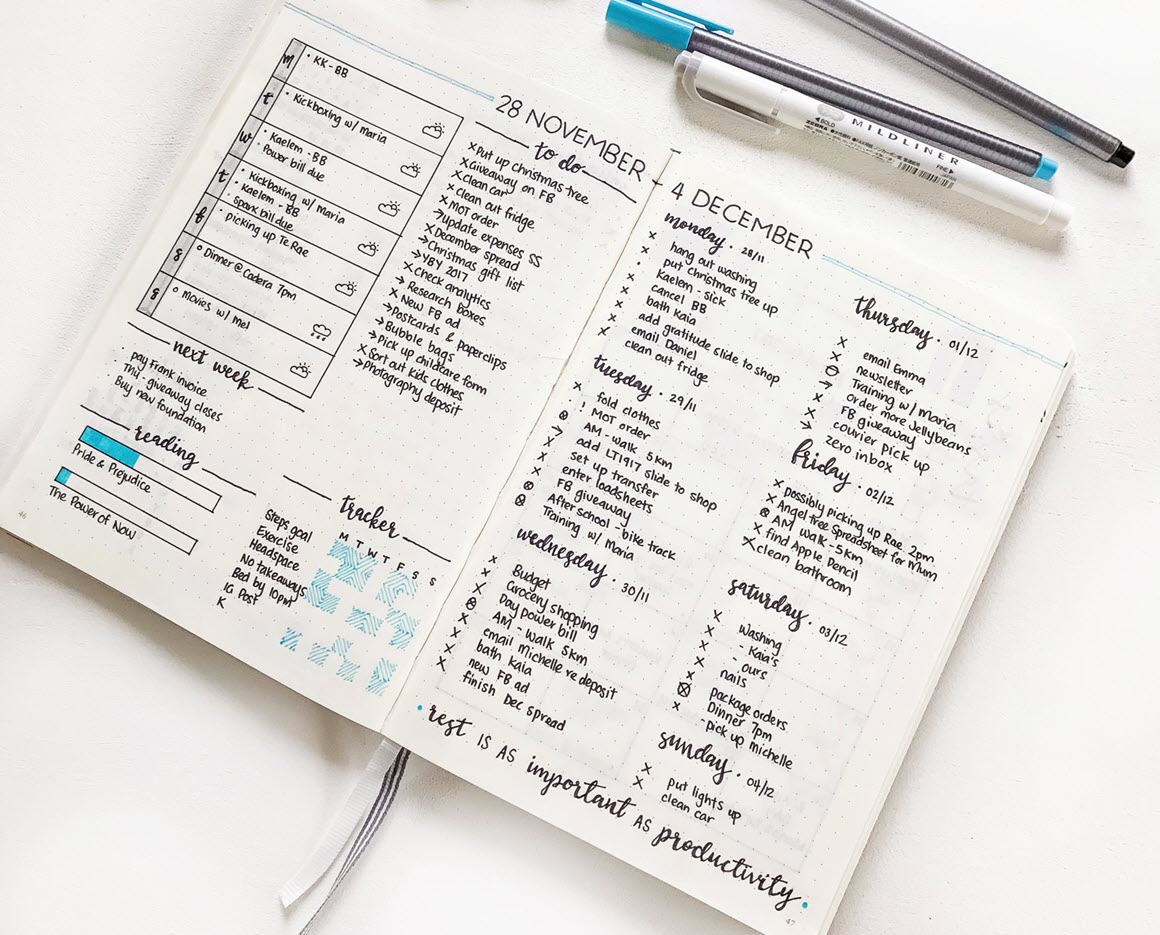 28 NOVEMBER - 4 DECEMBER
m
• KK - BB
t
• Kickboxing w/ maria
w
• Kaelem - BB
• Power bill due
t
• Kickboxing w/ maria
• Kaelem - BB
• Spark bill due
f
• picking up Te Rae
s
o Dinner @ Cadera 7pm
s
o movies w/ me!
next week
• pay Frank invoice
• Thu - giveaway closes
• Buy new foundation
reading
Pride & Prejudice
The Power of Now
46
to do
x Put up christmas tree
x Giveaway on FB
x clean car
x clean out fridge
x MOT order
→ update expenses SS
x December spread
→ Christmas gift list
→ YBY 2017
x Check analytics
→ Research boxes
x New FB ad
→ Postcards & paperclips
→ Bubble bags
→ Pick up childcare form
x Sort out kids clothes
→ Photography deposit
tracker
M T W T F S S
Steps goal
Exercise
Headspace
No takeaways
Bed by 10pm
IG Post
K
monday • 28/11
x hang out washing
x put Christmas tree up
• Kaelem - sick
x cancel BB
x bath Kaia
x add gratitude slide to shop
x email Daniel
x clean out fridge
tuesday • 29/11
x fold clothes
! MOT order
⊗ AM - walk 5km
→ add LT1917 slide to shop
x set up transfer
x enter loadsheets
x FB giveaway
⊗ After school - bike track
⊗ Training w/ Maria
wednesday • 30/11
x Budget
x Grocery shopping
x Pay power bill
⊗ AM - walk 5km
x email Michelle re deposit
x bath kaia
x new FB ad
x finish Dec spread
thursday • 01/12
x email Emma
x newsletter
Training w/ Maria
→ order more Jellybeans
x FB giveaway
x courier pick up
→ zero inbox
friday • 02/12
x possibly picking up Rae 2pm
x Angel tree Spreadsheet for Mum
⊗ AM walk - 5km
x find Apple Pencil
x clean bathroom
saturday • 03/12
x washing
x - Kaia's
x - ours
x nails
x package orders
⊗ Dinner 7pm
x - pick up michelle
sunday • 04/12
x put lights up
x clean car
• rest IS AS important AS productivity •
47
BOLD
ZEBRA
MILDLINER
FINE
JAPAN